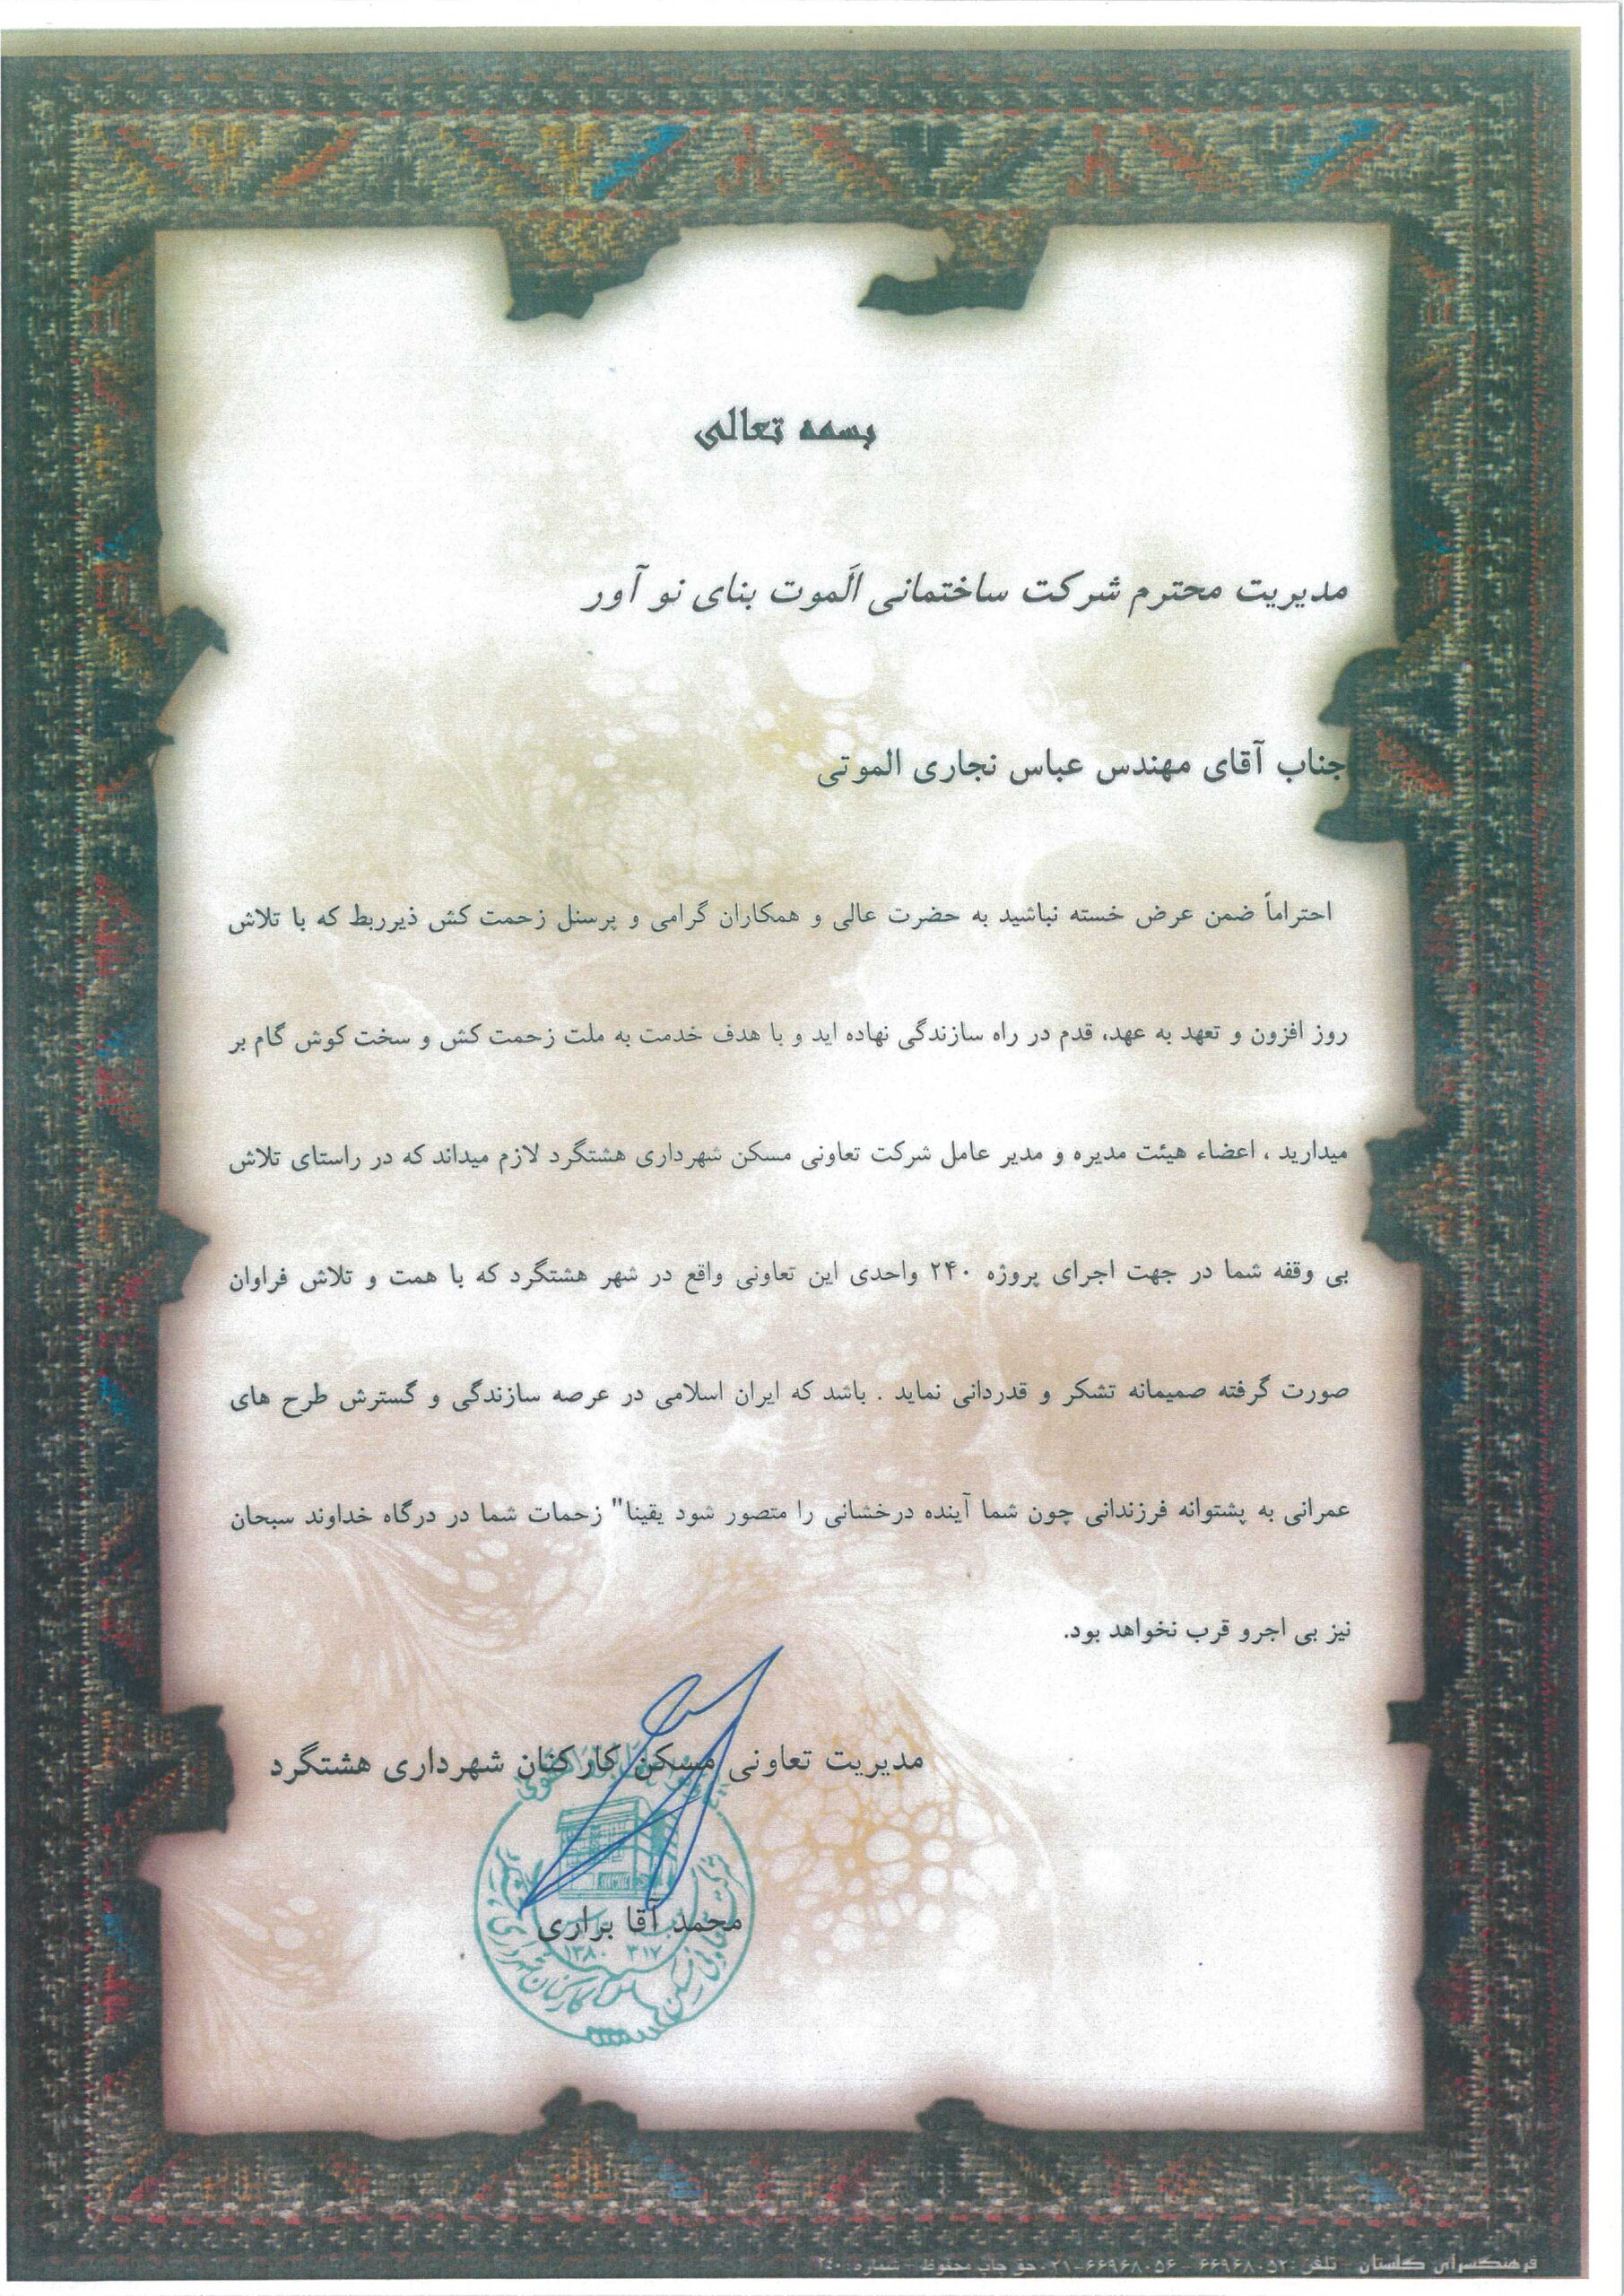 بسمه تعالی
مدیریت محترم شرکت ساختمانی اَلموت بنای نو آور
جناب آقای مهندس عباس نجاری الموتی
احتراماً ضمن عرض خسته نباشید به حضرت عالی و همکاران گرامی و پرسنل زحمت کش ذیرربط که با تلاش
روز افزون و تعهد به عهد، قدم در راه سازندگی نهاده اید و با هدف خدمت به ملت زحمت کش و سخت کوش گام بر
میدارید ، اعضاء هیئت مدیره و مدیر عامل شرکت تعاونی مسکن شهرداری هشتگرد لازم میداند که در راستای تلاش
بی وقفه شما در جهت اجرای پروژه ۲۴۰ واحدی این تعاونی واقع در شهر هشتگرد که با همت و تلاش فراوان
صورت گرفته صمیمانه تشکر و قدردانی نماید . باشد که ایران اسلامی در عرصه سازندگی و گسترش طرح های
عمرانی به پشتوانه فرزندانی چون شما آینده درخشانی را متصور شود یقینا" زحمات شما در درگاه خداوند سبحان
نیز بی اجرو قرب نخواهد بود.
مدیریت تعاونی مسکن کارکنان شهرداری هشتگرد
محمد آقا براری
۱۳۸۰ ۳۱۷
فرهنگسرای گلستان - تلفن : ۶۶۹۶۸۰۵۲ - ۶۶۹۶۸۰۵۶-۰۲۱ حق چاپ محفوظ - شماره : ۲۴۰